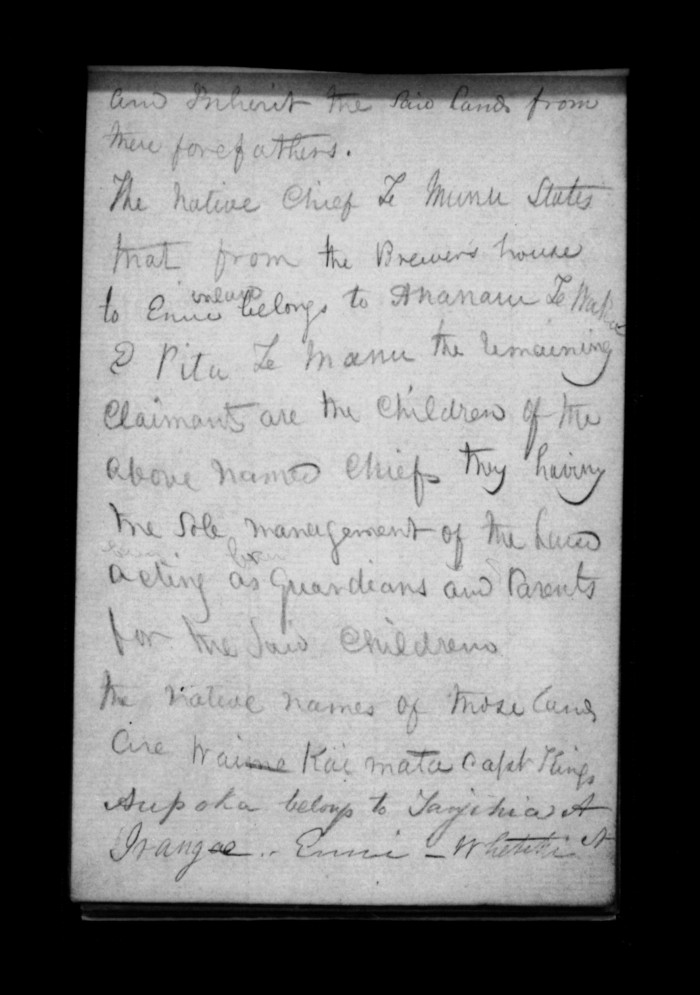 and Inherit the said lands from
there forefathers.
The Native Chief Te Manu States
that from the Brewers house
to Enui inland belongs to Ananau Te
& Pita Te Manu the remaining
Claimants are the Children of the
above named Chiefs they having
the Sole management of the land
acting as Guardians and Parents
for the Said Childrens
the native names of those lands
are Kai mata Capt Kings
Aupoka belongs to A
Irangae .. Ennui -